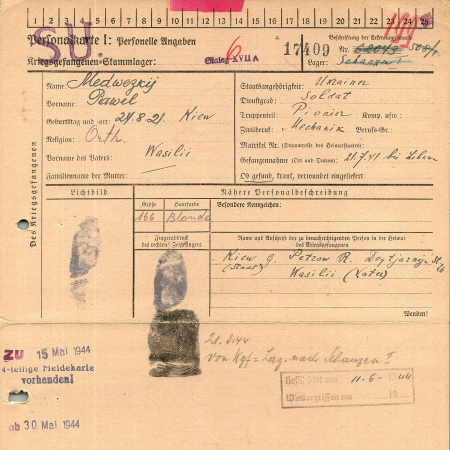 1 2 3 4 5 6 7 8 9 10 11 12 13 14 15 16 17 18 19 20 21 22 23 24 25
S.U.
Personalkarte I: Personelle Angaben
Kriegsgefangenen-Stammlager: Stalag XVII A
6
17409
Beschriftung der Erkennungsmarke
Nr.
Lager: Schaazen I
Des Kriegsgefangenen
Name: Medwezkij
Vorname: Pawel
Geburtstag und -ort: 24.8.21. Kiew
Religion: Orth.
Vorname des Vaters: Wasilii
Familienname der Mutter:
Staatsangehörigkeit: Ukrainer
Dienstgrad: Soldat
Truppenteil: Pionier Komp. usw.:
Zivilberuf: Mechanik Berufs-Gr.:
Matrikel Nr. (Stammrolle des Heimatstaates):
Gefangennahme (Ort und Datum): 21.7.41 bei
Ob gesund, krank, verwundet eingeliefert:
Lichtbild
Nähere Personalbeschreibung
Größe Haarfarbe Besondere Kennzeichen:
166 Blonde
Fingerabdruck
des rechten Zeigefingers
Name und Anschrift der zu benachrichtigenden Person in der Heimat
des Kriegsgefangenen
Kiew G. Petrow R.
(Stadt) Wasilii (Vater)
Wenden!
ZU 15 Mai 1944
4-teilige Meldekarte
vorhanden!
ab 30 Mai 1944
von Kgf = Lag. nach Schaazen I
11-6-1944
Wiederergriffen am 19